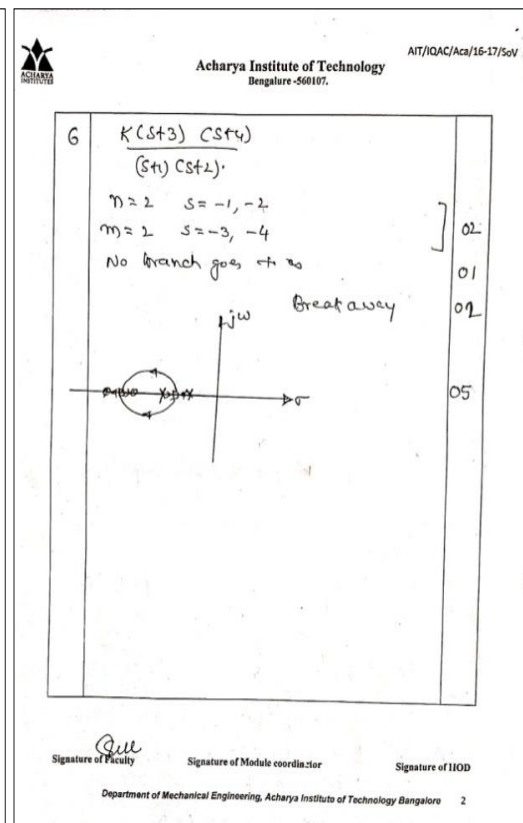 AIT/IQAC/Aca/16-17/SoV
ACHARYA
INSTITUTES
Acharya Institute of Technology
Bengalure -560107.
6
K(S+3) (S+4)
(S+1) (S+2).
n = 2 S = -1, -2
m = 2 S = -3, -4
02
No branch goes to ∞
01
Break away
02
jω
σ
05
Signature of Faculty
Signature of Module coordinator
Signature of HOD
Department of Mechanical Engineering, Acharya Institute of Technology Bangalore 2